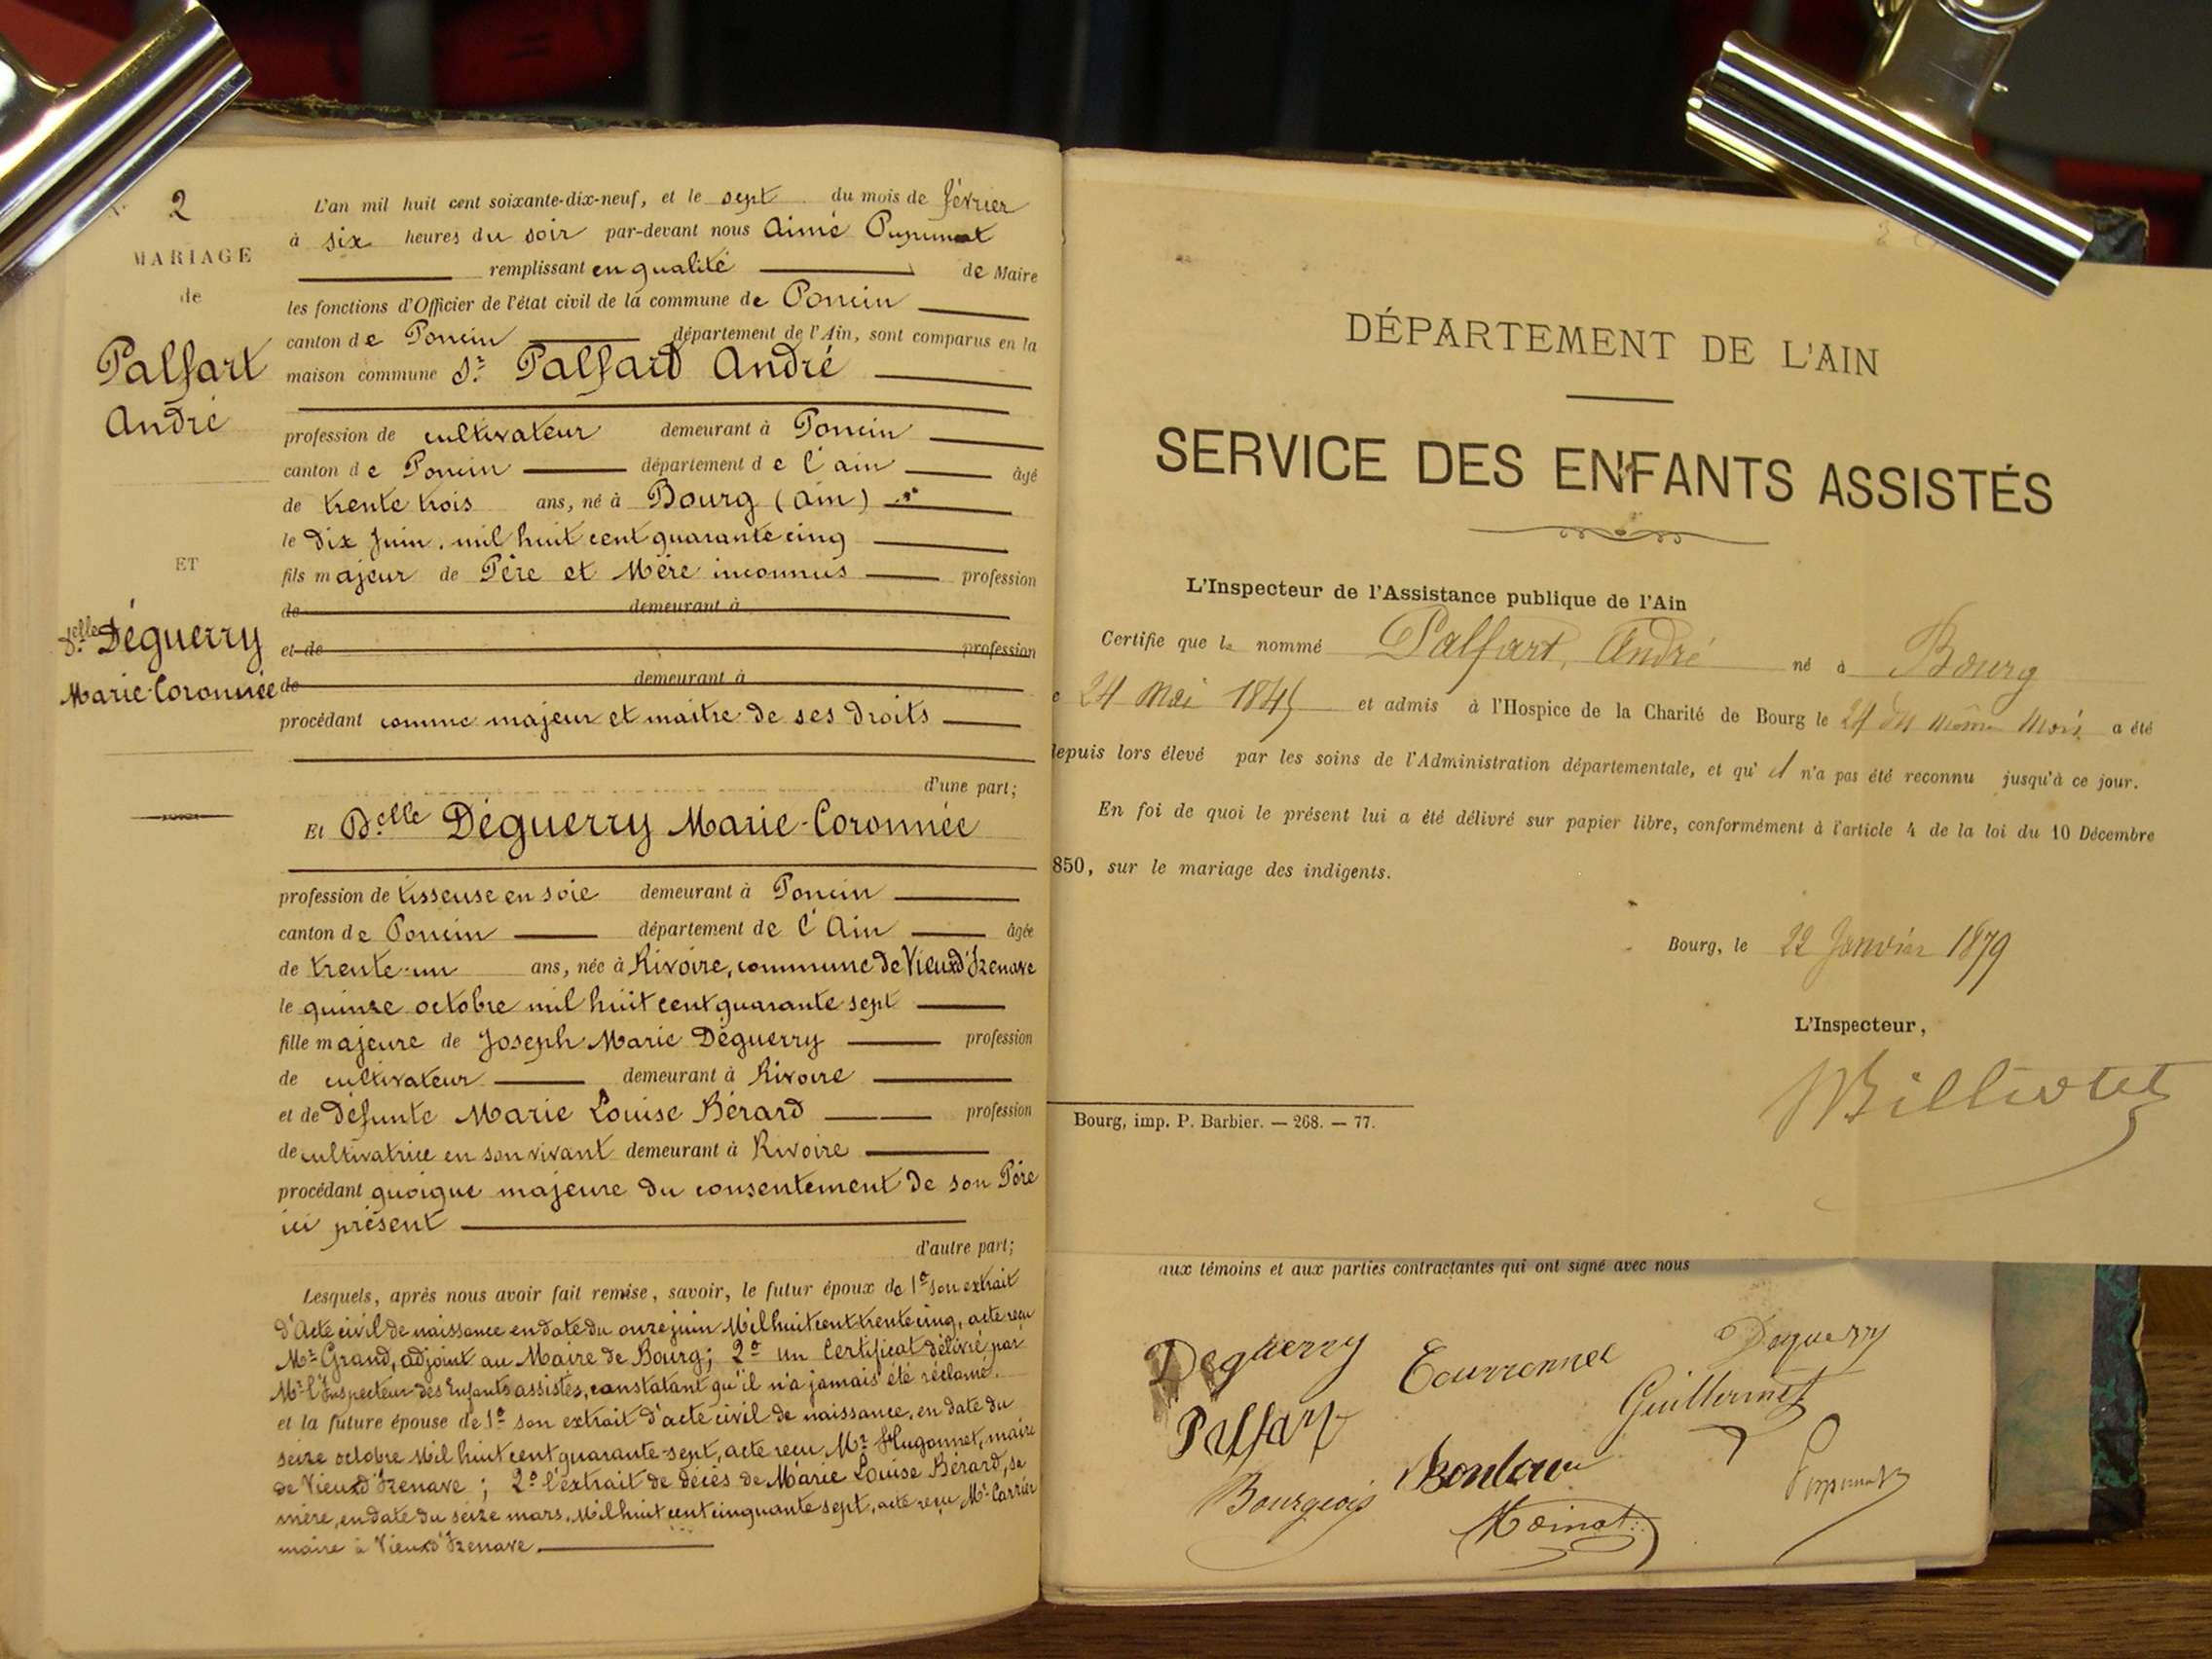 2
MARIAGE
de
Palfart
André
ET
Delle Déguerry
Marie-Coronnée
L'an mil huit cent soixante-dix-neuf, et le sept du mois de février
à six heures du soir par-devant nous Aimé
remplissant en qualité de Maire
les fonctions d'Officier de l'état civil de la commune de Poncin
canton de Poncin département de l'Ain, sont comparus en la
maison commune Sr Palfard André
profession de cultivateur demeurant à Poncin
canton de Poncin département de l'ain âgé
de trente trois ans, né à Bourg (ain)
le dix Juin, mil huit cent quarante cinq
fils majeur de Père et Mère inconnus profession
de demeurant à
et de profession
de demeurant à
procédant comme majeur et maitre de ses droits
d'une part;
Et Delle Déguerry Marie-Coronnée
profession de tisseuse en soie demeurant à Poncin
canton de Poncin département de l'Ain âgée
de trente-un ans, née à Rivoire, commune de Vieux d'Izenave
le quinze octobre mil huit cent quarante sept
fille majeure de Joseph Marie Déguerry profession
de cultivateur demeurant à Rivoire
et de défunte Marie Louise Bérard profession
de cultivatrice en son vivant demeurant à Rivoire
procédant quoique majeure du consentement de son Père
ici présent
d'autre part;
Lesquels, après nous avoir fait remise, savoir, le futur époux de 1º son extrait
d'Acte civil de naissance en date du onze juin Mil huit cent trente cinq, acte reçu
Mr Grand, adjoint au Maire de Bourg; 2º un Certificat délivré par
Mr l'Inspecteur des Enfants assistés, constatant qu'il n'a jamais été réclamé.
et la future épouse de 1º son extrait d'acte civil de naissance, en date du
seize octobre Mil huit cent quarante-sept, acte reçu Mr Hugonnet, maire
de Vieux d'Izenave; 2º l'extrait de décès de Marie Louise Bérard, sa
mère, en date du seize mars, Mil huit cent cinquante sept, acte reçu Mr Carrier
maire à Vieux d'Izenave
DÉPARTEMENT DE L'AIN
SERVICE DES ENFANTS ASSISTÉS
L'Inspecteur de l'Assistance publique de l'Ain
Certifie que le nommé Palfart, André né à Bourg
e 24 Mai 1845 et admis à l'Hospice de la Charité de Bourg le 24 du même mois a été
depuis lors élevé par les soins de l'Administration départementale, et qu'il n'a pas été reconnu jusqu'à ce jour.
En foi de quoi le présent lui a été délivré sur papier libre, conformément à l'article 4 de la loi du 10 Décembre
850, sur le mariage des indigents.
Bourg, le 22 Janvier 1879
L'Inspecteur,
Bourg, imp. P. Barbier. — 268. — 77.
aux témoins et aux parties contractantes qui ont signé avec nous
Deguerry
Deguerry
Guillermet
Palfart
Bourgeois